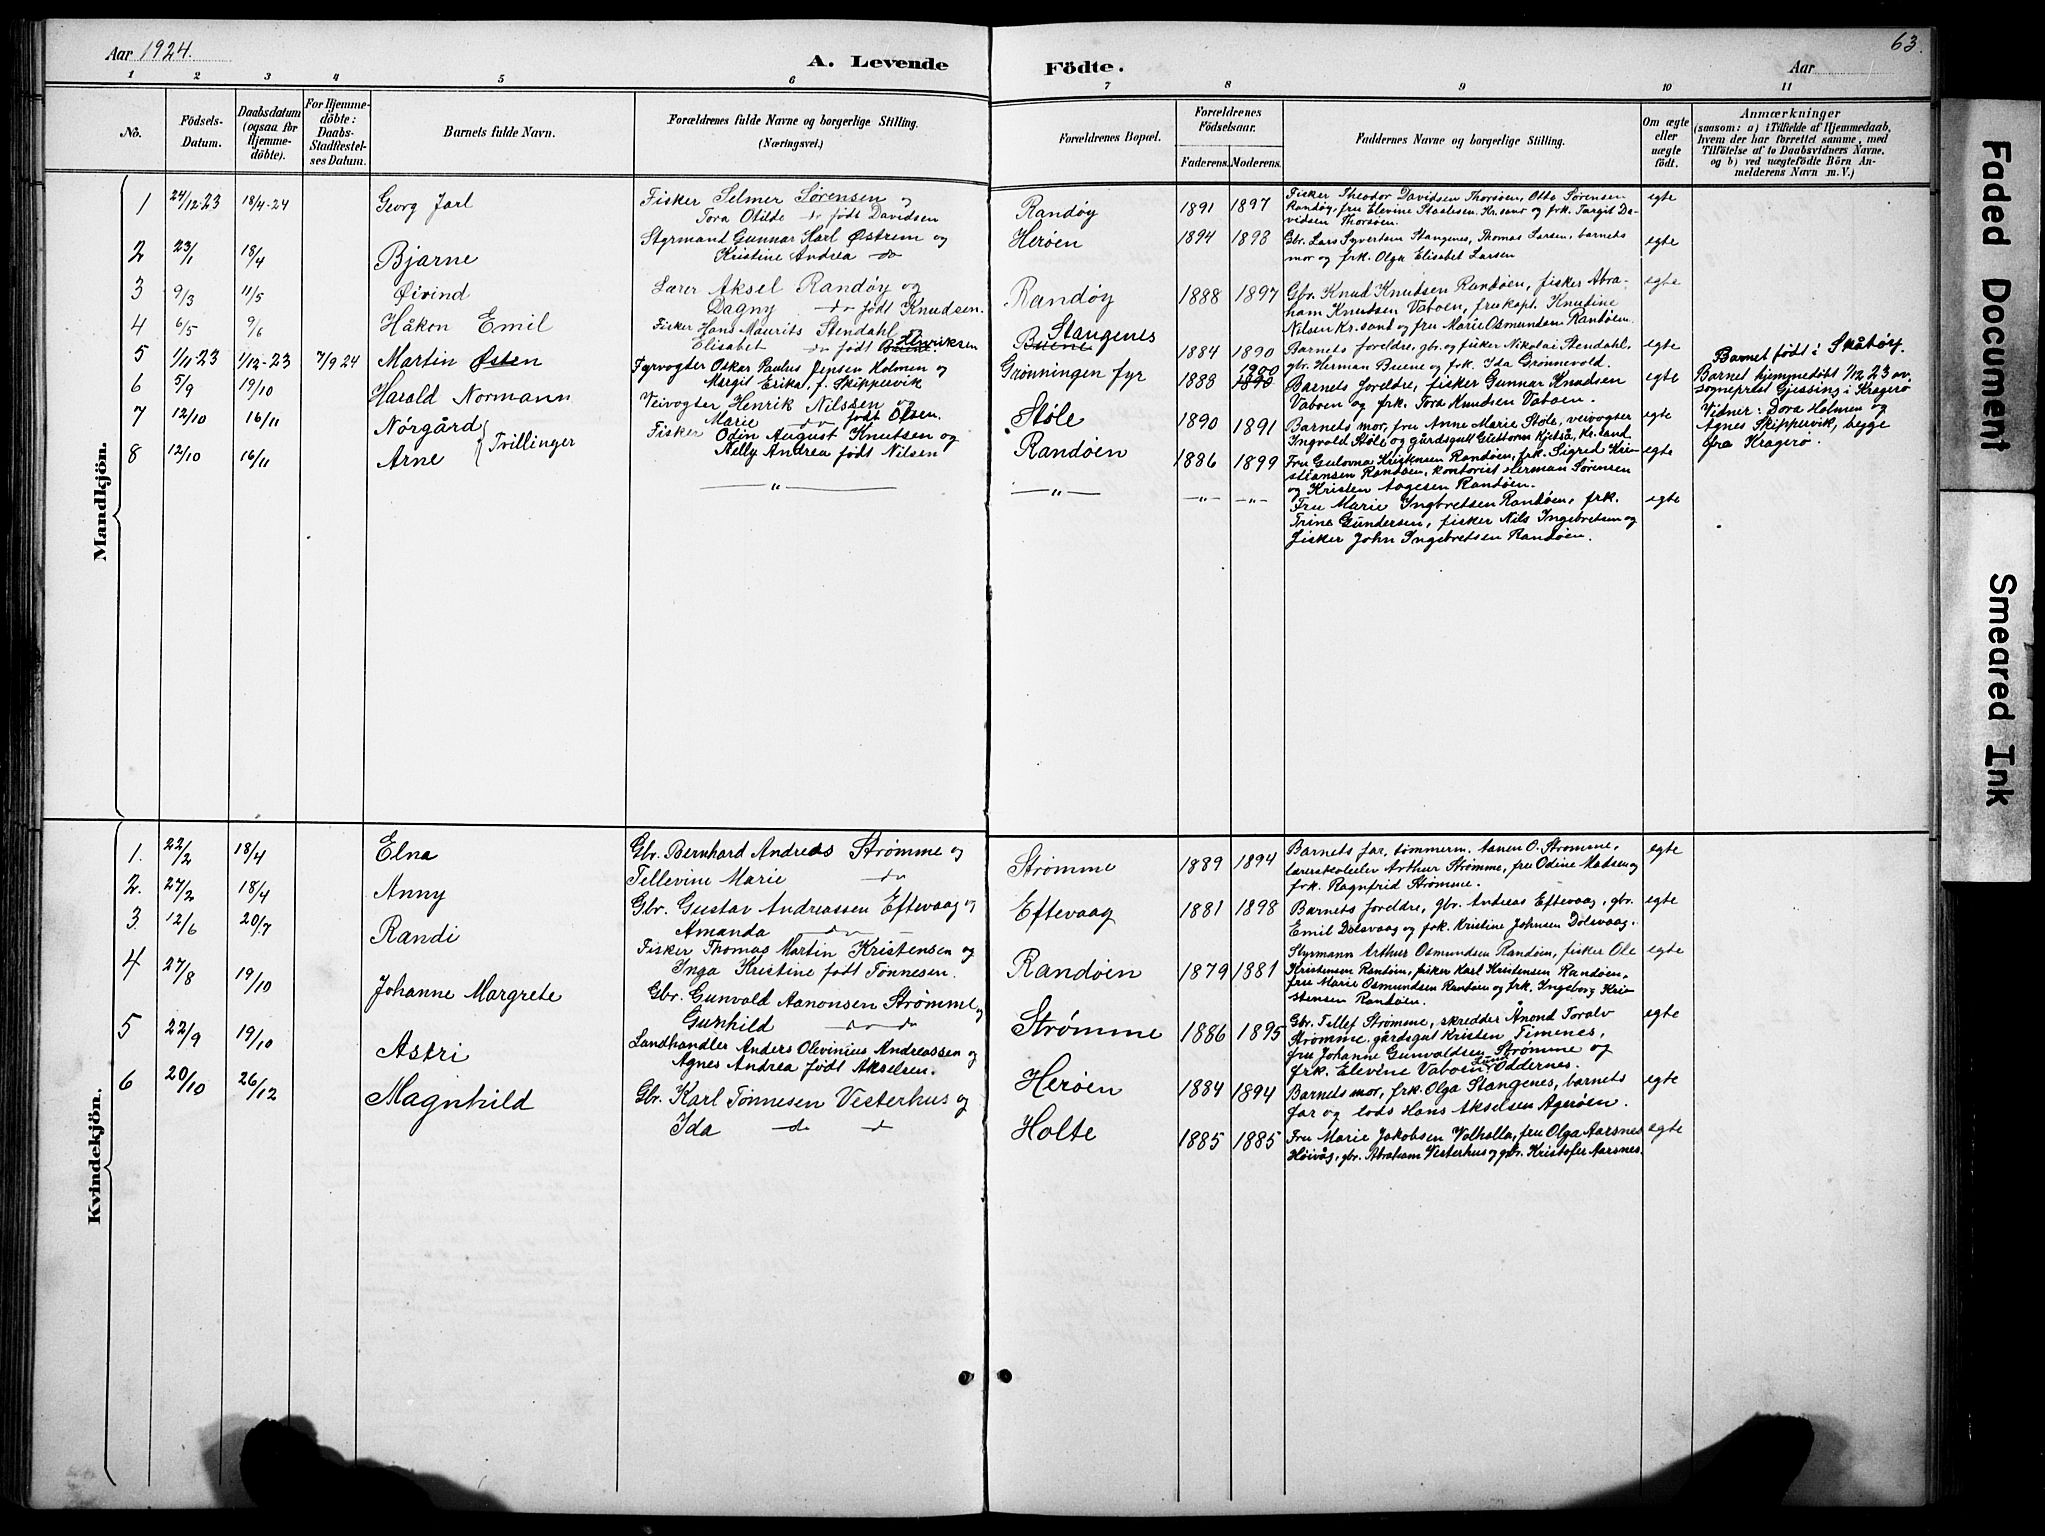 Aar 1924.
A. Levende
Födte.
Aar
63.
1 2 3 4 5 6 7 8 9 10 11
No.
Födsels-
Datum.
Daabsdatum
(ogsaa for
Hjemme-
döbte).
For Hjemme-
döbte:
Daabs-
Stadfestel-
ses Datum.
Barnets fulde Navn.
Forældrenes fulde Navne og borgerlige Stilling.
(Næringsvei.)
Forældrenes Bopæl.
Forældrenes
Födselsaar.
Faderens. Moderens.
Faddernes Navne og borgerlige Stilling.
Om ægte
eller
uægte
födt.
Anmærkninger
(saasom: a) i Tilfælde af Hjemmedaab,
hvem der har forrettet samme, med
Tilföielse af to Daabsvidners Navne,
og b) ved uægtefödte Börn An-
melderens Navn m. V.)
Mandkjön.
1 24/12-23 18/4-24 Georg Jarl
Fisker Selmer Sørensen og
Tora Otilde do født Davidsen
Randøy 1891 1897
Fisker Theodor Davidsen Thorsøen, Otto Sørensen
Randøy, fru Elevine Staalesen Kr.sand og frk. Targit Da-
vidsen Thorsøen.
egte
2 23/1 18/4 Bjarne
Styrmand Gunnar Karl Østrem og
Kristine Andrea do
Herøen 1894 1898
Gbr. Lars Syvertsen Stangenes, Thomas Larsen, barnets
mor og frk. Olga Elisabet Larsen
egte
3 9/3 11/5 Øivind
Lærer Aksel Randøy og
Dagny do født Knudsen.
Randøy 1888 1897
Gbr. Knud Knudsen Randøen, fisker Abra-
ham Knudsen Vaboen, fru kapt. Knutine
Nilsen Kr.sand og fru Marie Osmundsen Randøen.
egte
4 6/5 9/6 Håkon Emil
Fisker Hans Maurits Stendahl og
Elisabet do født Buene. Henriksen
Buene Stangenes 1884 1890
Barnets foreldre, gbr. og fisker Nikolai Stendahl,
gbr. Herman Buene og frk. Ida Grønnevold.
egte
5 1/11 23 1/12-23 7/9 24 Martin Østen
Fyrvogter Oskar Paulus Jensen Holmen og
Margit Erika, f. Skippervik
Grønningen fyr 1888 1890 1900
Barnets foreldre, fisker Gunnar Knudsen
Vaboen og frk. Tora Knudsen Vaboen.
egte
Barnet født i Skåtøy.
Barnet hjemmedøbt 1/12 23 av
sogneprest Gjessing i Kragerø
Vidner: Dora Holmen og
Agnes Skippervik, begge
fra Kragerø.
6 5/9 19/10 Harald Normann
Veivogter Henrik Nilssen og
Marie do født Olsen.
Støle 1890 1891
Barnets mor, fru Anne Marie Støle, veivogter
Ingvald Støle og gårdsgutt Guttorm Kjelså, Kr.sand
egte
7 12/10 16/11 Nörgård
8 12/10 16/11 Arne
Tvillinger
Fisker Odin August Knutsen og
Nelly Andrea født Nilsen
Randøen 1886 1899
Fru Gulovna Kristensen Randøen, frk. Sigred Kri-
stiansen Randøen, kontorist Herman Sørensen
og Kristen Aagesen Randøen.
egte
" " " "
Fru Marie Ingbretsen Randøen, frk.
Trine Gundersen, fisker Nils Ingebretsen og
fisker John Ingebretsen Randøen.
egte
Kvindekjön.
1. 22/2 18/4 Elna
Gbr. Bernhard Andreas Strømme og
Tellevine Marie do
Strømme 1889 1894
Barnets far, tømmerm. Aanen O. Strømme,
lærerskoleelev Arthur Strømme, fru Odine Madsen og
frk. Ragnfrid Strømme.
egte
2. 27/2 18/4 Anny
Gbr. Gustav Andreassen Eftevaag og
Amanda do
Eftevaag 1881 1898
Barnets foreldre, gbr. Andreas Eftevaag, gbr.
Emil Dolsvaag og frk. Kristine Johnsen Dolsvaag.
egte
3. 12/6 20/7 Randi
Fisker Thomas Martin Kristensen og
Inga Kristine født Tønnesen.
Randøen 1879 1881
Styrmann Arthur Osmundsen Randøen, fisker Ole
Kristensen Randøen, fisker Karl Kristensen Randøen,
fru Marie Osmundsen Randøen og frk. Ingeborg Kri-
stensen Randøen.
egte
4 27/8 19/10 Johanne Margrete
Gbr. Gunvald Aanonsen Strømme og
Gunhild do do
Strømme 1886 1895
Gbr. Tellef Strømme, skredder Ånond Toralv
Strømme. gårdsgut Kristen Timenes,
fru Johanne Gunvaldsen Strømme og
frk. Elevine Vaboen Lund Oddernes.
egte
5 22/9 19/10 Astri
Landhandler Anders Olevinius Andreassen og
Agnes Andrea født Akselsen.
Herøen 1884 1894
Barnets mor, frk. Olga Stangenes, barnets
far og lods Hans Akselsen Agerøen.
egte
6 20/10 26/12 Magnhild
Gbr. Karl Tønnesen Vesterhus og
Ida do do
Holte 1885 1885
Fru Marie Jakobsen Valhalla, fru Olga Aarsnes
Høivåg, gbr. Abraham Vesterhus og gbr. Kristofer Aarsnes.
egte
Faded Document
Smeared Ink